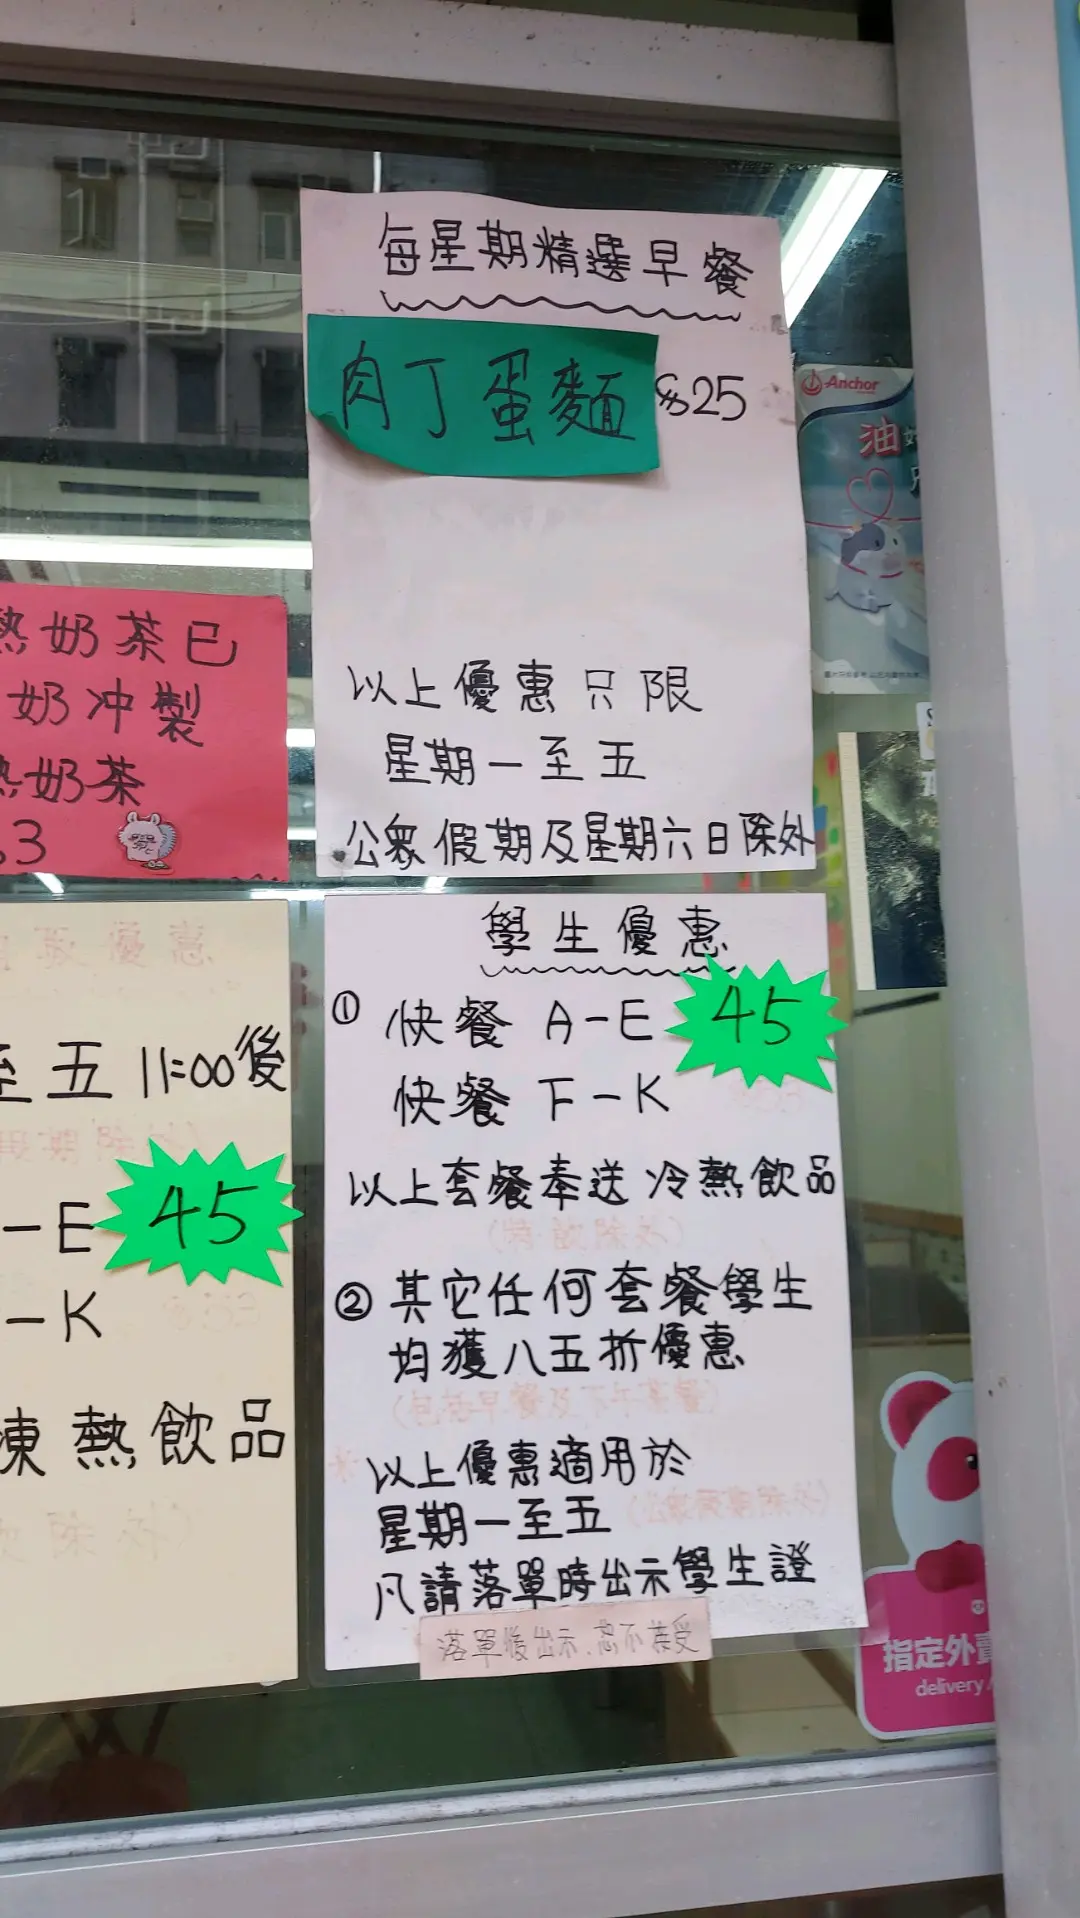 每星期精選早餐
肉丁蛋麵 $25
以上優惠只限
星期一至五
公眾假期及星期六日除外
Anchor
油
熱奶茶已
奶冲製
熱奶茶
3
優惠
至五 11:00後
-E 45
-K
凍熱飲品
除外
學生優惠
① 快餐 A-E 45
快餐 F-K
以上套餐奉送冷熱飲品
(特飲除外)
② 其它任何套餐學生
均獲八五折優惠
(包括早餐及下午茶餐)
以上優惠適用於
星期一至五 (公眾假期除外)
凡請落單時出示學生證
落單後出示、恕不接受
指定外賣
delivery